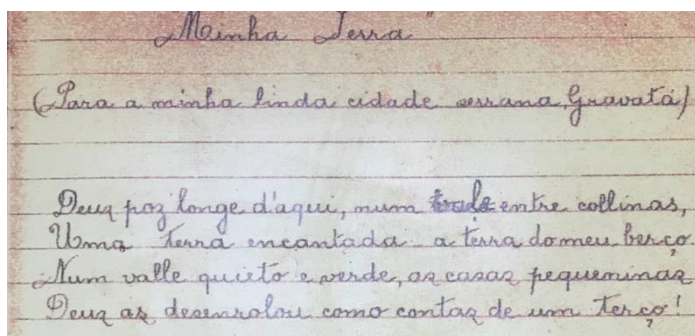 "Minha Terra"
(Para a minha linda cidade serrana, Gravatá)
Deus poz longe d'aqui, num entre collinas,
Uma terra encantada a terra do meu berço.
Num valle quieto e verde, as casas pequeninas
Deus as desenrolou como contas de um terço!